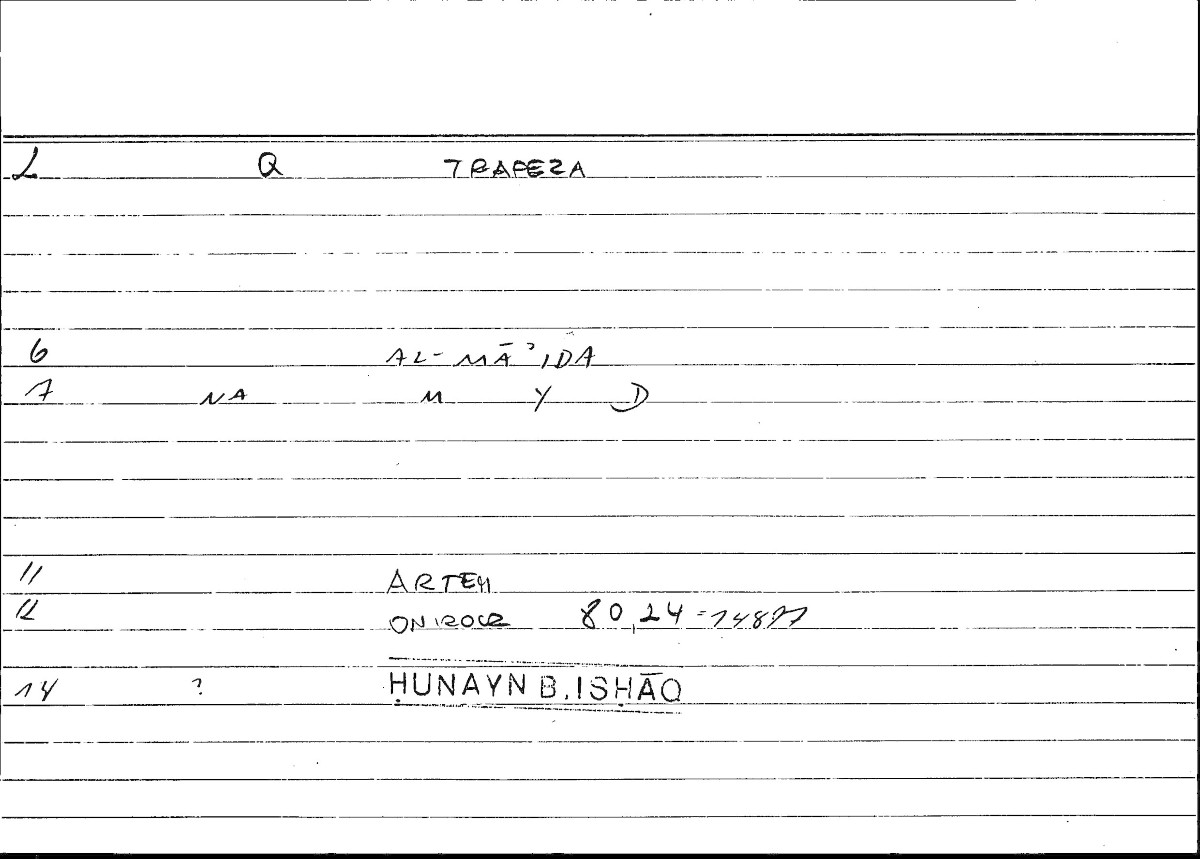 L Q TRAPEZA
6 AL-MĀʾIDA
7 NA M Y D
11 ARTEM
12 ONIROCR 80,24 =148,7
14 ? ḤUNAYN B. ISḤĀQ